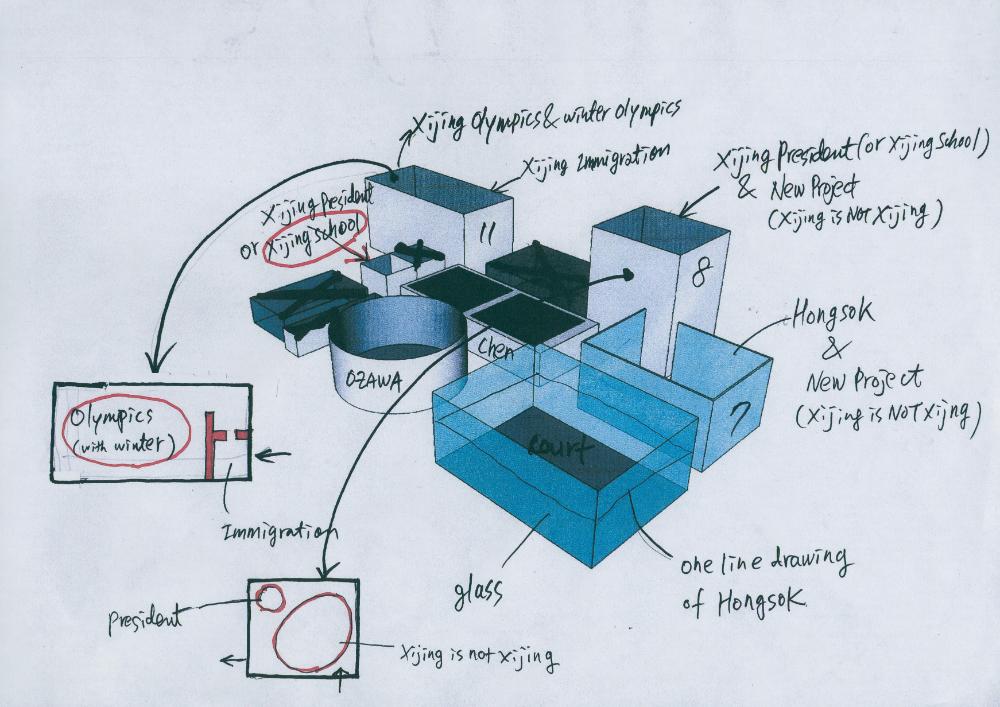 Xijing Olympics & winter Olympics
Xijing Immigration
Xijing President (or Xijing School)
& New Project
(Xijing is Not Xijing)
Xijing President
or Xijing School
11
8
Hongsok
&
New Project
(Xijing is NOT Xijng)
7
Chen
OZAWA
court
Olympics
(with winter)
Immigration
glass
one line drawing
of Hongsok
President
Xijing is not xijing